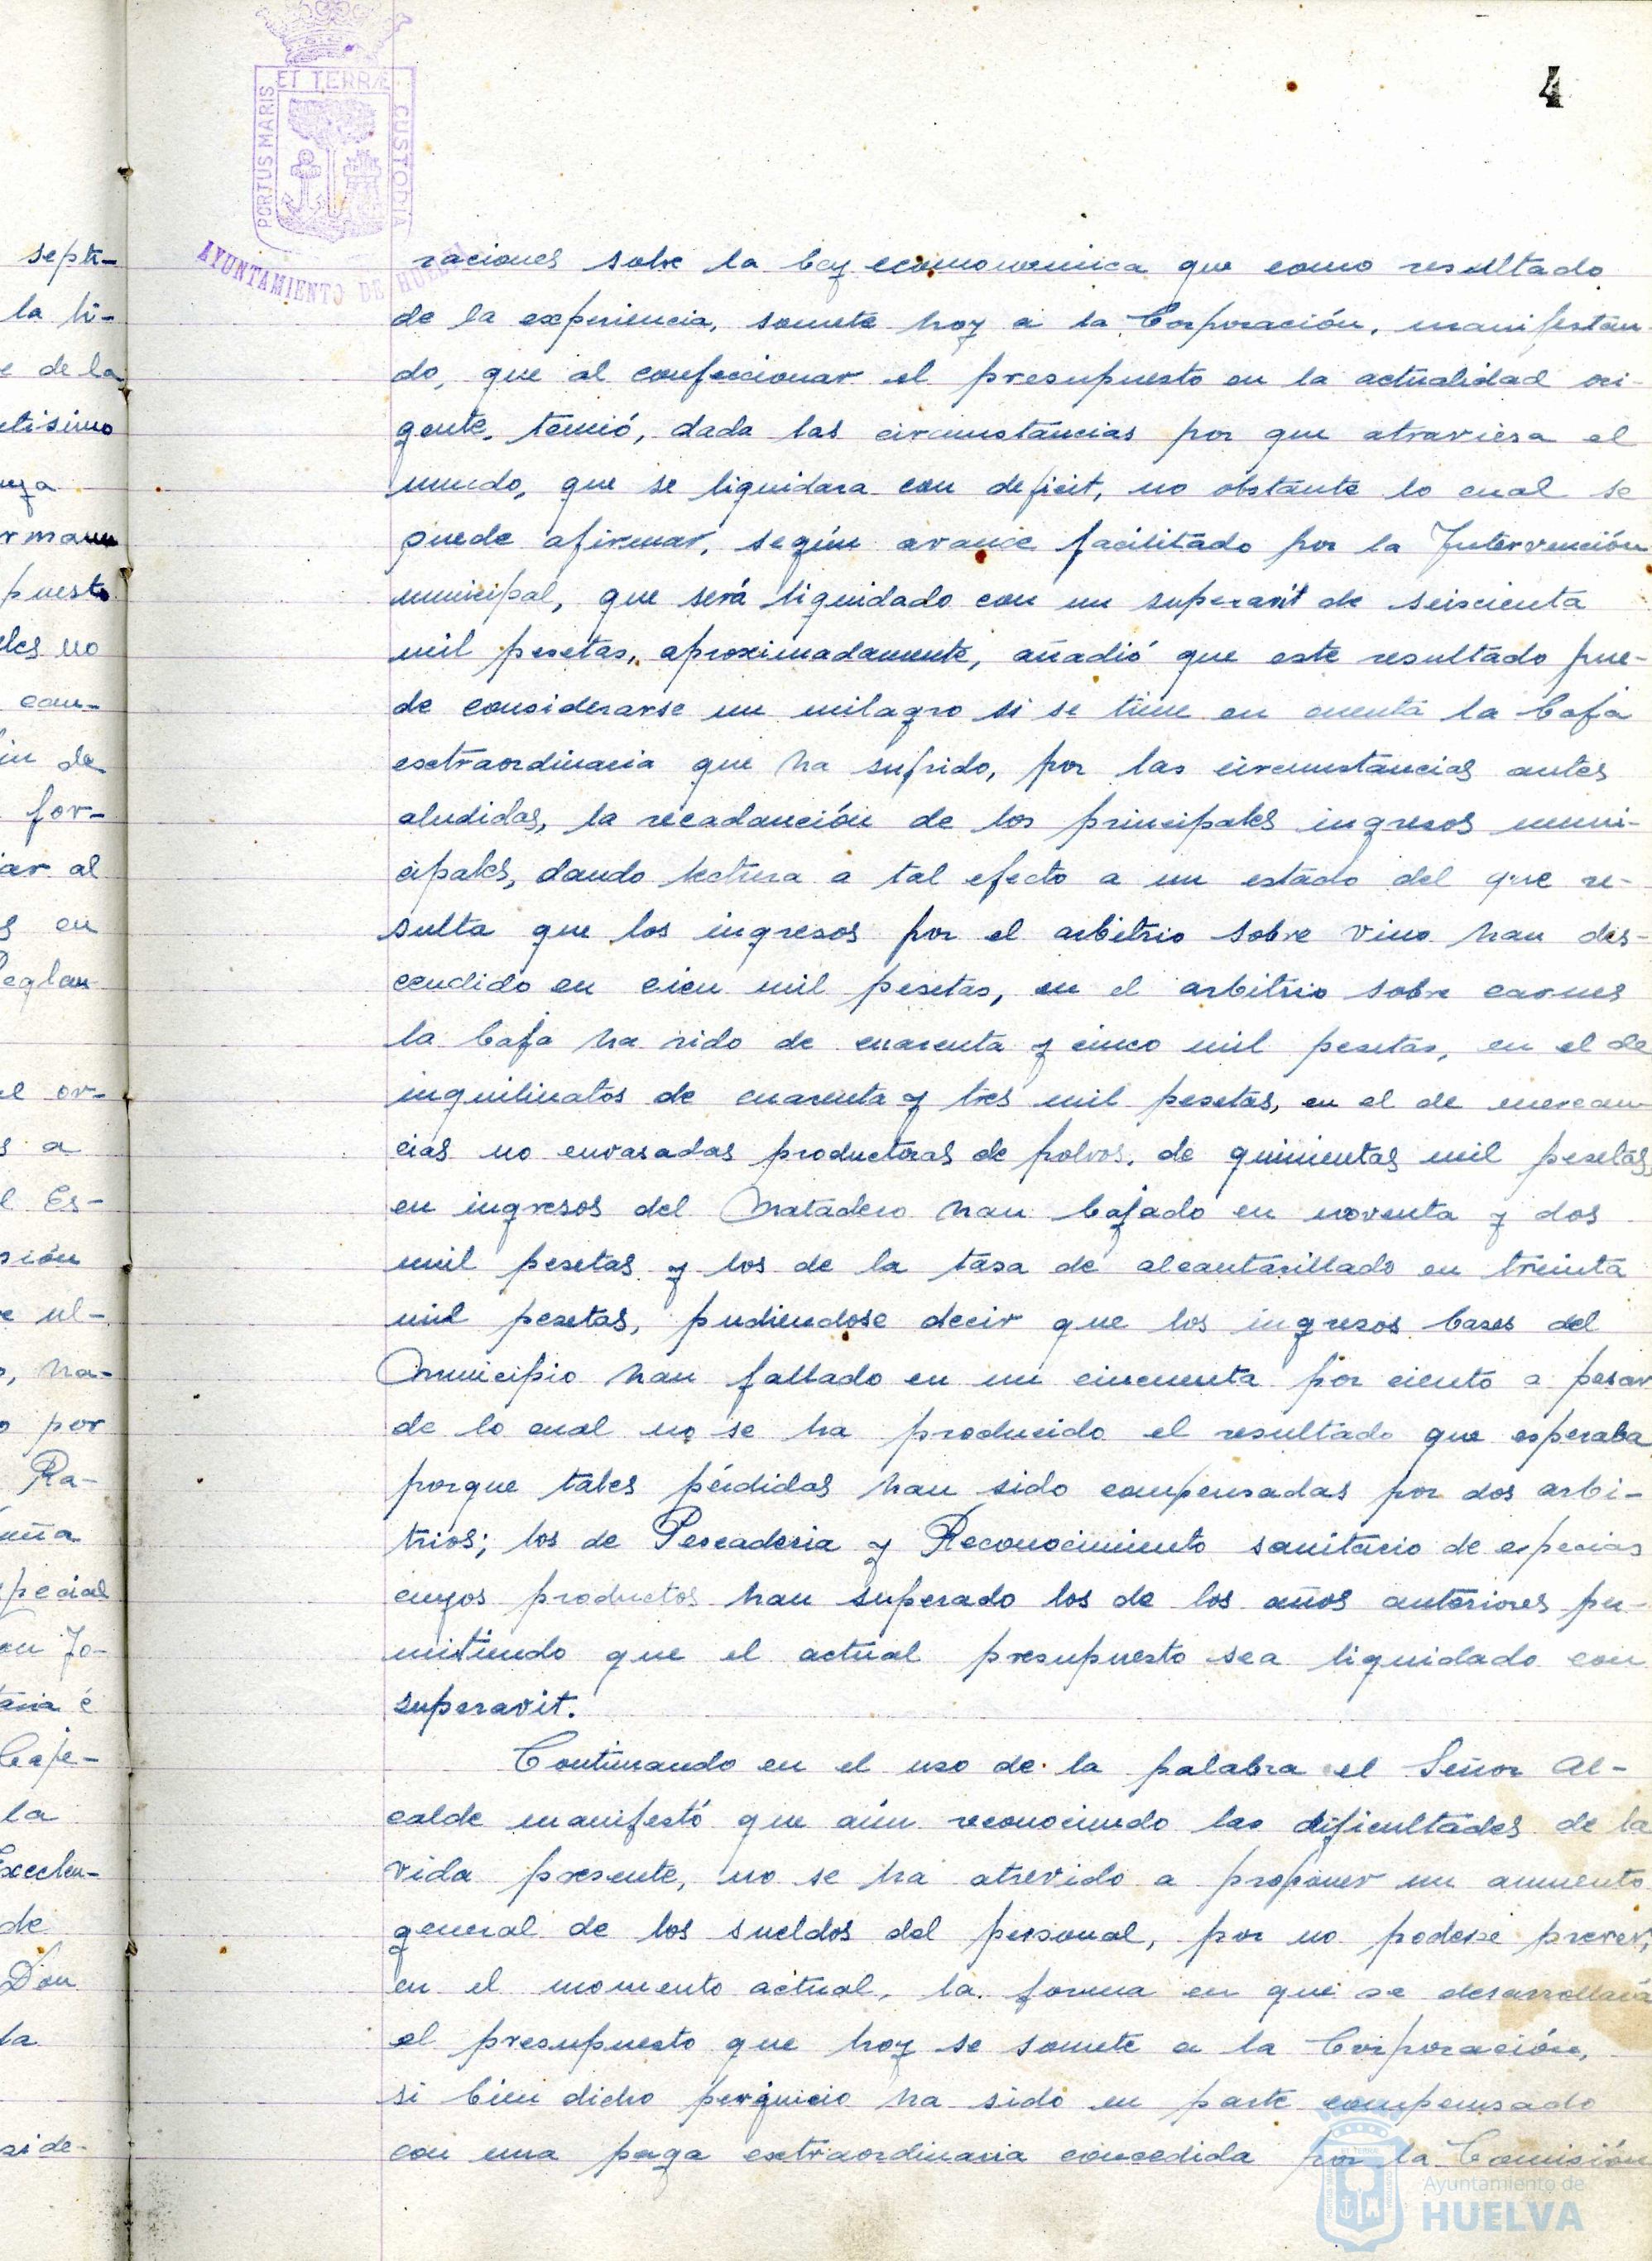 4
ET TERRÆ
PORTUS MARIS
CUSTODIA
AYUNTAMIENTO DE HUELVA
septi-
la li-
e de la
ntisimo
rmaun
puesto
eles no
cau-
in de
for-
iar al
s en
Reglau
el or-
s a
l Es-
sión
e ul-
o, ha-
o por
Ra-
uña
pecial
on Jo-
taria é
Caje-
la
Excelen-
de
Don
la
side-
raciones sobre la Ley economomica que como resultado
de la experiencia, somete hoy a la Corporación, manifestan-
do, que al confeccionar el presupuesto en la actualidad vi-
gente, temió, dada las circunstancias por que atraviesa el
mundo, que se liquidara con deficit, no obstante lo cual se
puede afirmar, según avance facilitado por la Intervención
municipal, que será liquidado con un superavit de seiscienta
mil pesetas, aproximadamente, añadió que este resultado pue-
de considerarse un milagro si se tiene en cuenta la baja
extraordinaria que ha sufrido, por las circunstancias antes
aludidas, la recadaución de los principales ingresos muni-
cipales, dando lectura a tal efecto a un estado del que re-
sulta que los ingresos por el arbitrio sobre vino han des-
cendido en cien mil pesetas, en el arbitrio sobre carnes
la baja ha sido de cuarenta y cinco mil pesetas, en el de
inquilinatos de cuarenta y tres mil pesetas, en el de mercan-
cias no envasadas productoras de polvos, de quinientas mil pesetas,
en ingresos del Matadero han bajado en noventa y dos
mil pesetas y los de la tasa de alcantarillado en treinta
mil pesetas, pudiendose decir que los ingresos bases del
Municipio han fallado en un cincuenta por ciento a pesar
de lo cual no se ha producido el resultado que esperaba
porque tales pérdidas han sido compensadas por dos arbi-
trios; los de Pescaderia y Reconocimiento sanitario de especias
cuyos productos han superado los de los años anteriores per-
mitiendo que el actual presupuesto sea liquidado con
superavit.
Continuando en el uso de la palabra el Señor Al-
calde manifestó que aún reconociendo las dificultades de la
vida presente, no se ha atrevido a proponer un aumento
general de los sueldos del personal, por no poderse prever,
en el momento actual, la forma en que se desarrollará
el presupuesto que hoy se somete a la Corporación,
si bien dicho perjuicio ha sido en parte compensado
con una paga extraordinaria concedida por la Comisión
Ayuntamiento de
HUELVA